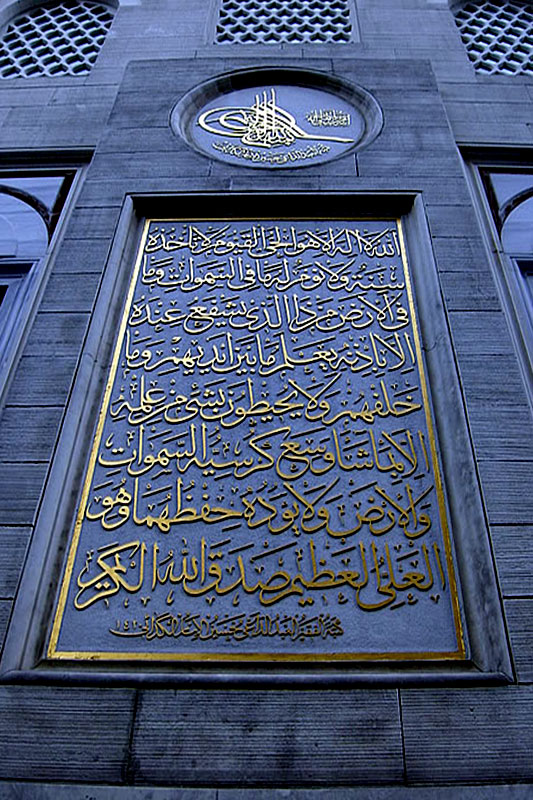 الله لا اله الا هو الحي القيوم لا تأخذه
سنة ولا نوم له ما في السموات وما
في الارض من ذا الذي يشفع عنده
الا باذنه يعلم ما بين ايديهم وما
خلفهم ولا يحيطون بشئ من علمه
الا بما شا وسع كرسيه السموات
والارض ولا يوده حفظهما وهو
العلي العظيم صدق الله الكريم